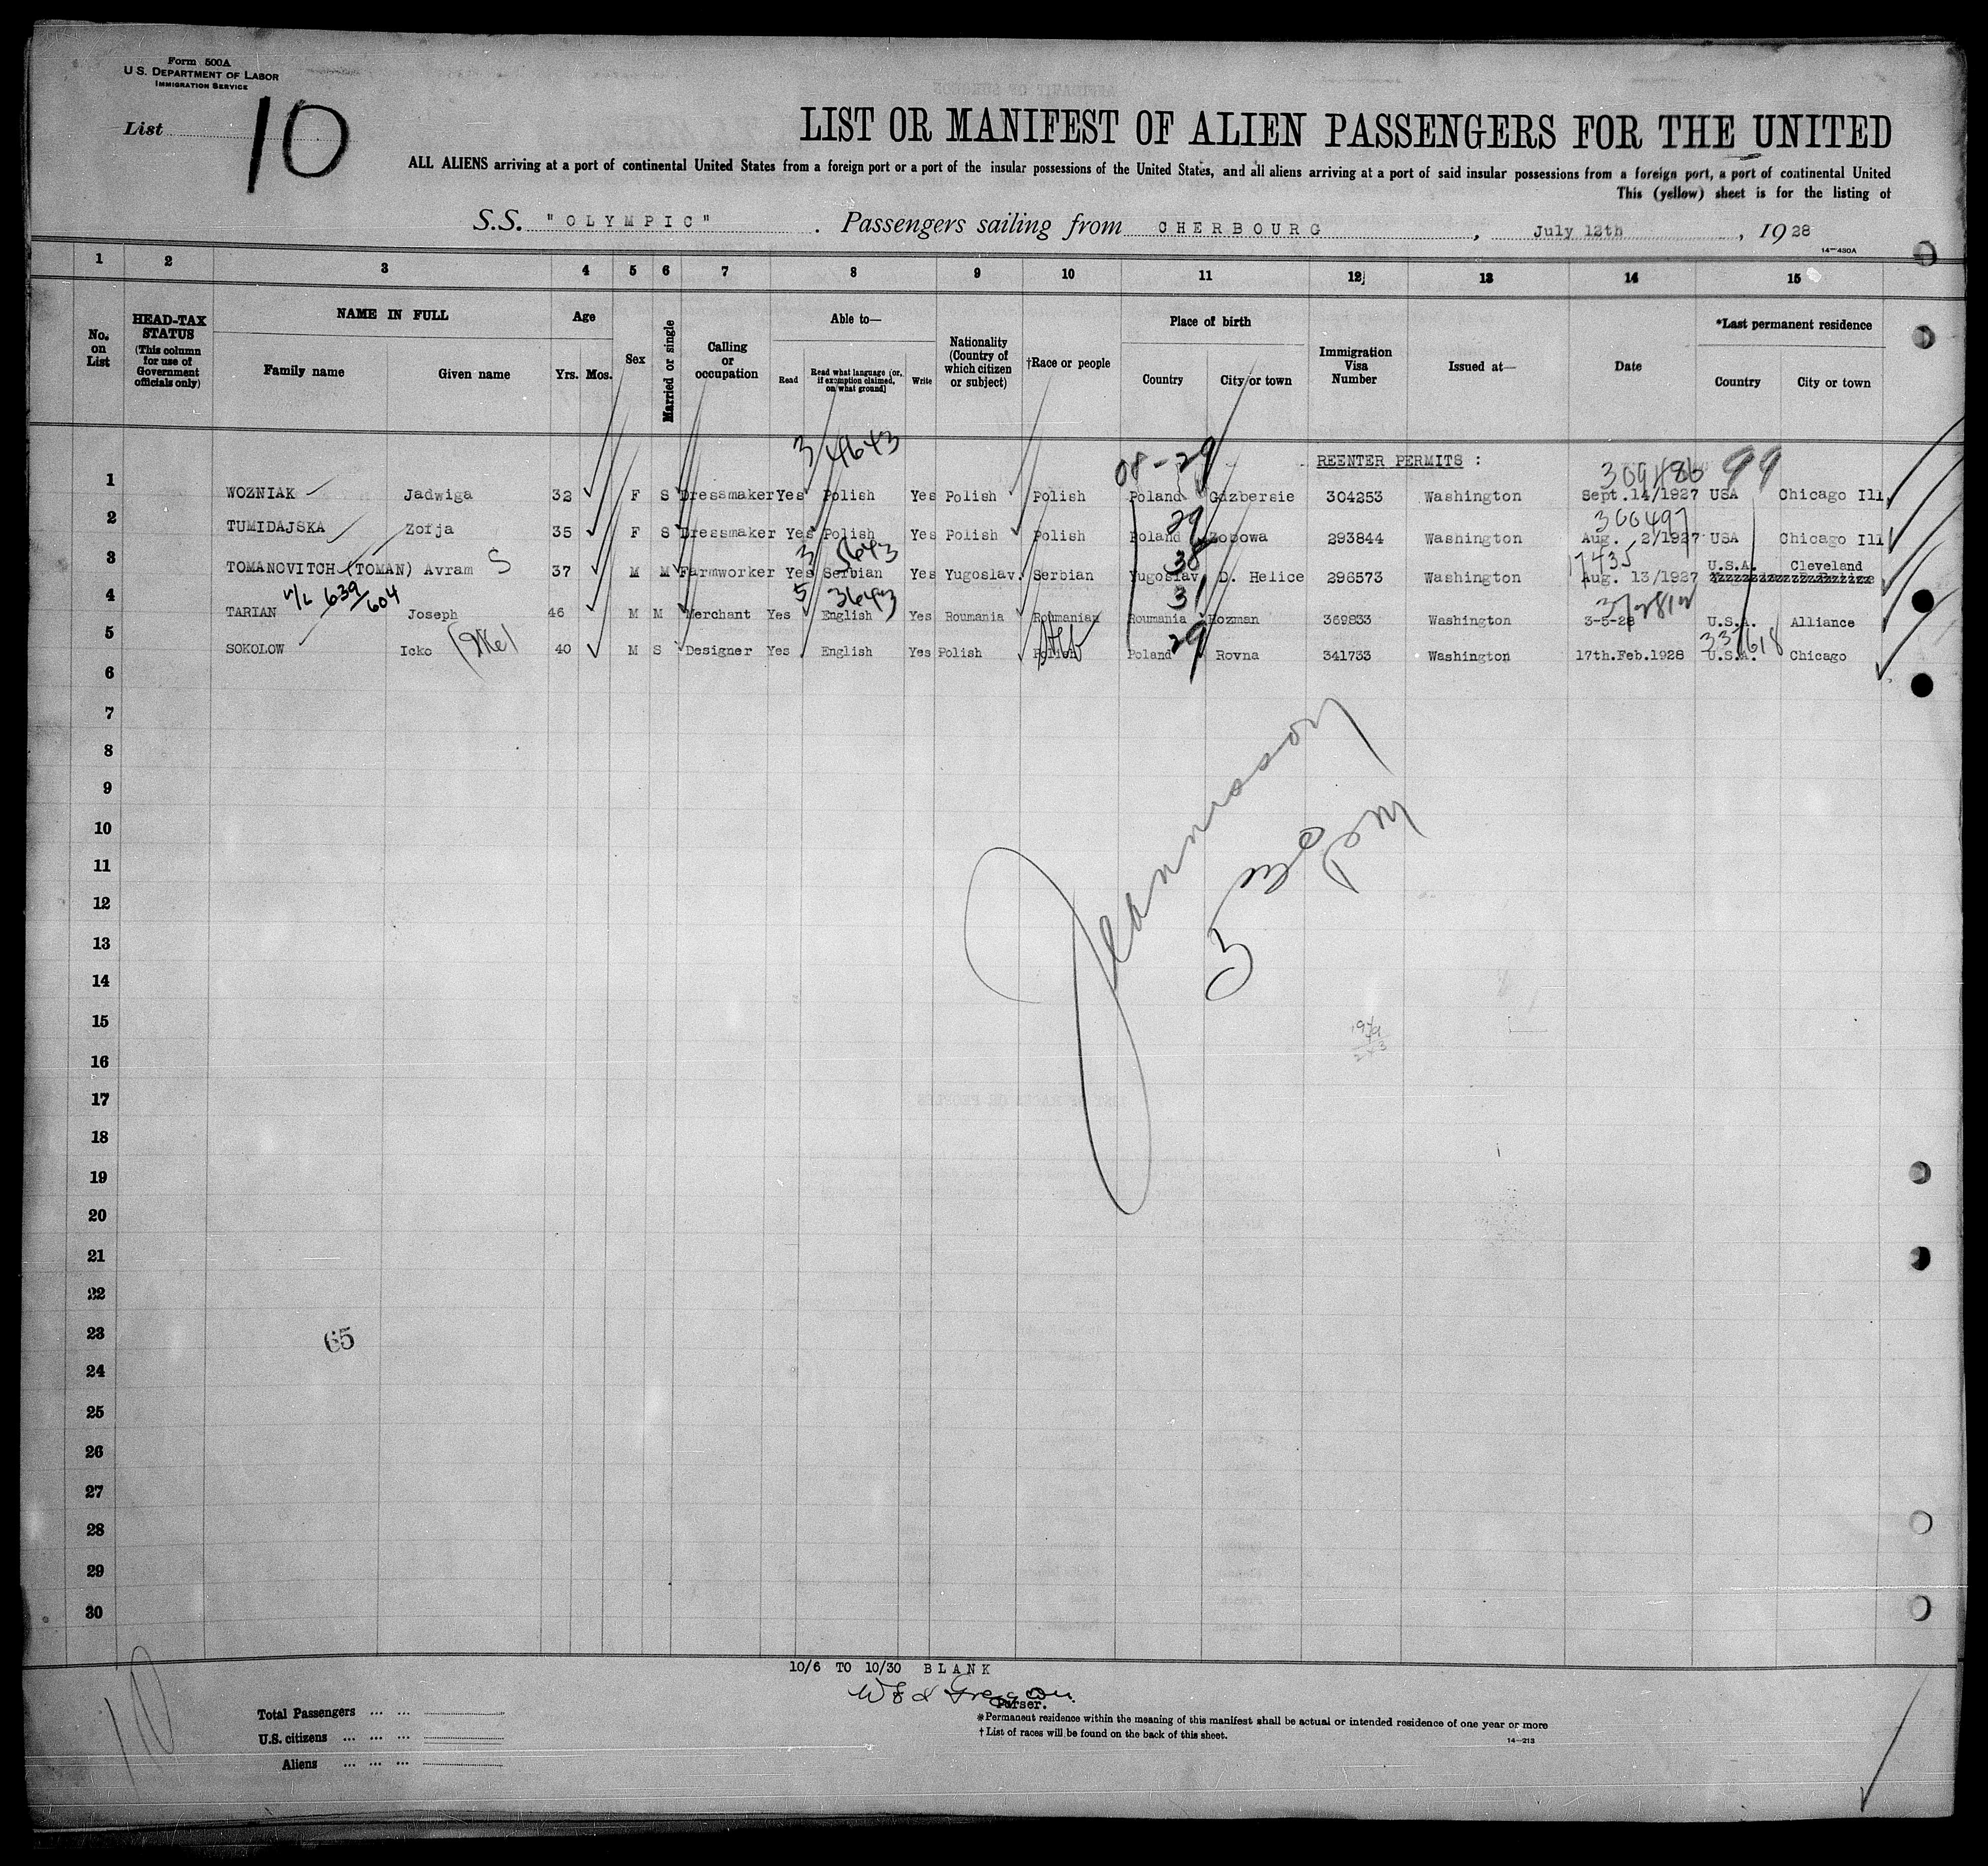 Form 500A
U.S. DEPARTMENT OF LABOR
IMMIGRATION SERVICE
List 10
LIST OR MANIFEST OF ALIEN PASSENGERS FOR THE UNITED
ALL ALIENS arriving at a port of continental United States from a foreign port or a port of the insular possessions of the United States, and all aliens arriving at a port of said insular possessions from a foreign port, a port of continental United
This (yellow) sheet is for the listing of
S.S. "OLYMPIC" . Passengers sailing from CHERBOURG , July 12th , 19 28
14—430A
1 2 3 4 5 6 7 8 9 10 11 12 13 14 15
No. on List
HEAD-TAX STATUS (This column for use of Government officials only)
NAME IN FULL
Family name Given name
Age
Yrs. Mos.
Sex
Married or single
Calling or occupation
Able to—
Read Read what language (or, if exemption claimed, on what ground) Write
Nationality (Country of which citizen or subject)
†Race or people
Place of birth
Country City or town
Immigration Visa Number
Issued at—
Date
*Last permanent residence
Country City or town
3 4643
08-29
REENTER PERMITS :
309486 99
1 WOZNIAK Jadwiga 32 F S Dressmaker Yes Polish Yes Polish Polish Poland Gdzbersie 304253 Washington Sept.14/1927 USA Chicago Ill.
29 300497
2 TUMIDAJSKA Zofja 35 F S Dressmaker Yes Polish Yes Polish Polish Poland Zobowa 293844 Washington Aug. 2/1927 USA Chicago Ill
3 5643 38 17435
3 TOMANOVITCH (TOMAN) Avram S 37 M M Farmworker Yes Serbian Yes Yugoslav. Serbian Yugoslav. D. Helice 296573 Washington Aug. 13/1927 U.S.A. Cleveland
639/604 5 3643 31
4 TARIAN Joseph 46 M M Merchant Yes English Yes Roumania Roumanian Roumania Rozman 369833 Washington 3-5-28 U.S.A. Alliance
29 337618
5 SOKOLOW Icko (Ike) 40 M S Designer Yes English Yes Polish Polish Heb Poland Rovna 341733 Washington 17th.Feb.1928 U.S.A. Chicago
6
7
8
9
10
11
12
13
14
15
16
17
18
19
20
21
22
23
65
24
25
26
27
28
29
30
10/6 TO 10/30 BLANK
Purser.
10
Total Passengers ... ...
U.S. citizens ... ... ...
Aliens ... ... ...
*Permanent residence within the meaning of this manifest shall be actual or intended residence of one year or more
†List of races will be found on the back of this sheet.
14—213